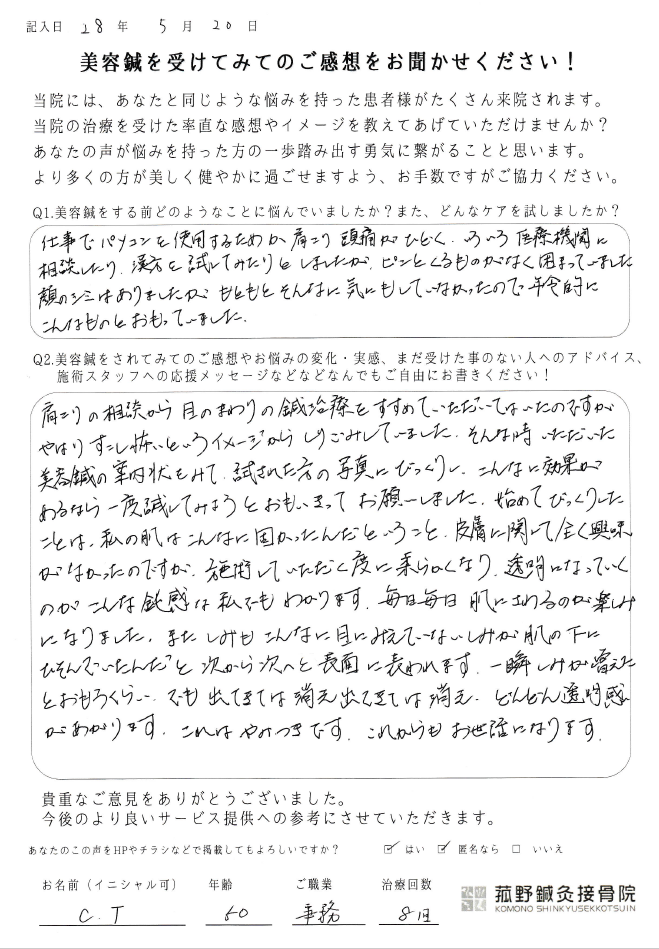 記入日 28 年 5 月 20 日
美容鍼を受けてみてのご感想をお聞かせください！
当院には、あなたと同じような悩みを持った患者様がたくさん来院されます。
当院の治療を受けた率直な感想やイメージを教えてあげていただけませんか？
あなたの声が悩みを持った方の一歩踏み出す勇気に繋がることと思います。
より多くの方が美しく健やかに過ごせますよう、お手数ですがご協力ください。
Q1.美容鍼をする前どのようなことに悩んでいましたか？また、どんなケアを試しましたか？
仕事でパソコンを使用するためか肩こり 頭痛がひどく、いろいろ医療機関に
相談したり、漢方を試してみたりとしましたが、ピンとくるものがなく困まっていました
顔のシミはありましたが もともとそんなに気にもしていなかったので年令的に
こんなものとおもっていました.
Q2.美容鍼をされてみてのご感想やお悩みの変化・実感、まだ受けた事のない人へのアドバイス、
施術スタッフへの応援メッセージなどなどなんでもご自由にお書きください！
肩こりの相談から 目のまわりの鍼治療をすすめていただいてはいたのですが
やはりすこし怖いというイメージからしりごみしていました. そんな時 いただいた
美容鍼の案内状をみて、試された方の写真にびっくりし、こんなに効果が
あるなら一度試してみようとおもいきって お願いしました. 始めてびっくりした
ことは、私の肌はこんなに固かったんだということ、皮膚に関して全く興味
がなかったのですが、施術していただく度に柔らかくなり、透明になっていく
のが こんな鈍感な私でもわかります、毎日毎日 肌にさわるのが楽しみ
になりました、また しみも こんなに目にみえていないしみが肌の下に
ひそんでいたんだと 次から次へと表面に表われます. 一瞬しみが増えた
とおもうくらい、でも 出てきては消え 出てきては消え、どんどん透明感
があがります. これは やみつきです. これからも お世話になります.
貴重なご意見をありがとうございました。
今後のより良いサービス提供への参考にさせていただきます。
あなたのこの声をHPやチラシなどで掲載してもよろしいですか？ ☑ はい ☑ 匿名なら □ いいえ
お名前（イニシャル可） 年齢 ご職業 治療回数
C.T 50 事務 8回
菰野鍼灸接骨院
KOMONO SHINKYUSEKKOTSUIN